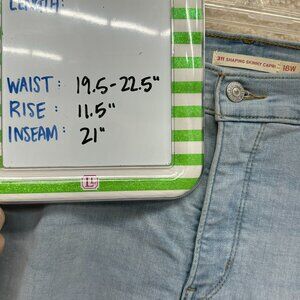 LENGTH:
WAIST: 19.5-22.5"
RISE: 11.5"
INSEAM: 21"
311 SHAPING SKINNY CAPRI
18W